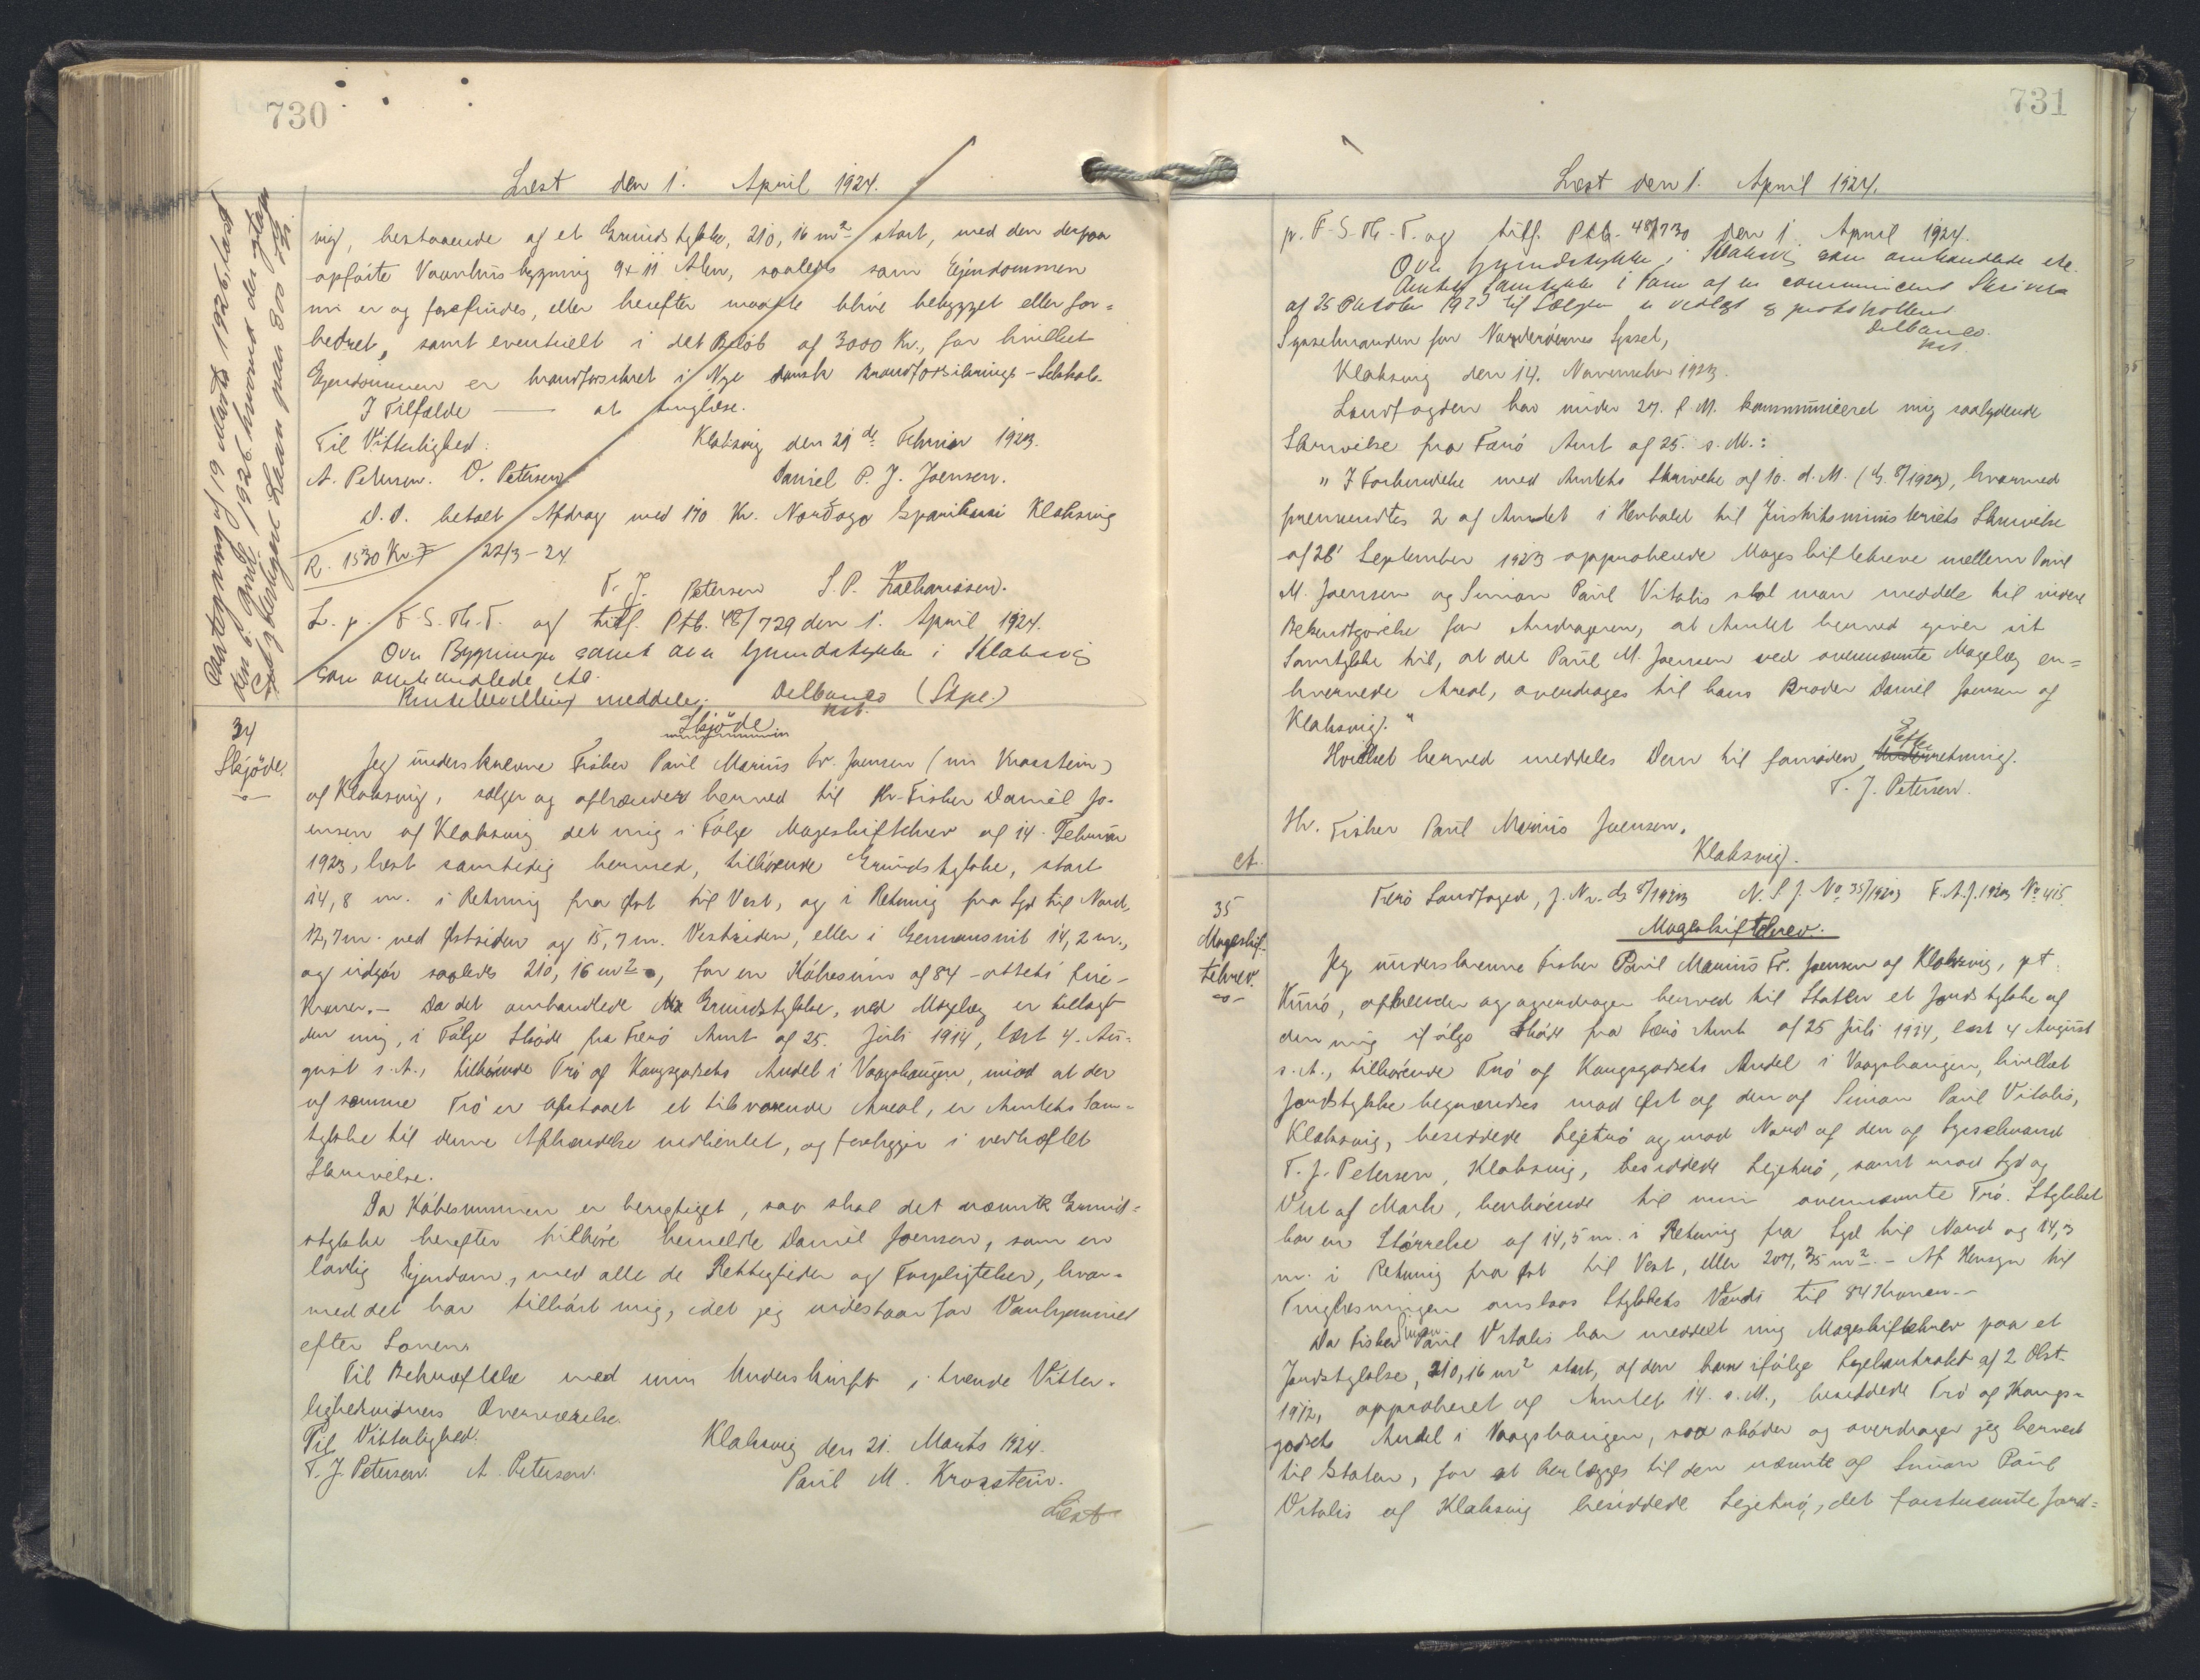 730
Læst den 1. April 1924.
Paategning af 19 Marts 1926, læst
den 6. April 1926 hvorved der gives
vig, bestaaende af et Grundstykke, 210,16 m² stort, med den derpaa
opførte Vaaningsbygning 9 x 11 Alen, saaledes som Ejendommen
nu er og forefindes, eller herefter maatte blive bebygget eller for-
bedret, samt eventuelt i det Beløb af 3000 Kr., for hvilket
Ejendommen er brandforsikret i Nye dansk Brandforsikrings-Selskab.
I Tilfælde — at tinglæse.
Til Vitterlighed: Klaksvig den 29de Februar 1923.
A. Petersen. O. Petersen Daniel P. J. Joensen.
D. D. betalt Afdrag med 170 Kr. Norðoya Sparikassi Klaksvig
R. 1530 Kr. 22/3-24
T. J. Petersen S. P. Zachariasen.
L. p. F-S-Th-T. og tilf. Ptb. 48/729 den 1. April 1924.
Over Bygningen samt over Grundstykke i Klaksvig
som omhandlede etc.
meddeles. Delbanco (Sspl.)
kst.
34
Skjøde.
Skjøde
Jeg underskrevne Fisker Paul Marius Fr. Joensen (nu Krosstein)
af Klaksvig, sælger og afhænder herved til Hr. Fisker Daniel Jo-
ensen af Klaksvig det mig i Følge Mageskiftebrev af 14. Februar
1923, læst samtidig hermed, tilhørende Grundstykke, stort
14,8 m. i Retning fra Øst til Vest, og i Retning fra Syd til Nord,
12,7 m. ved Østsiden og 15,7 m. Vestsiden, eller i Gennemsnit 14,2 m.,
og udgør saaledes 210,16 m², for en Købesum af 84 - otteti fire -
Kroner. - Da det omhandlede Grundstykke, ved Magelæg er tillagt
den mig, i Følge Skøde fra Færø Amt af 25. Juli 1914, læst 4. Au-
gust s. A., tilhørende Trø af Kongsgodsets Andel i Vaagshaugen, imod at der
af samme Trø er afstaaet et tilsvarende Areal, er Amtets Sam-
tykke til denne Afhændelse indhentet, og foreligger i vedhæftet
Skrivelse.
Da Købesummen er berigtiget, saa skal det nævnte Grund-
stykke herefter tilhøre bemeldte Daniel Joensen, som en
lovlig Ejendom, med alle de Rettigheder og Forpligtelser, hvor-
med det har tilhørt mig, idet jeg indestaar for Vanhjemmel
efter Loven.
Til Bekræftelse med min Underskrift i tvende Vitter-
lighedsvidners Overværelse.
Til Vitterlighed: Klaksvig den 21. Marts 1924.
T. J. Petersen. A. Petersen. Paul M. Krosstein.
Læst
731
Læst den 1. April 1924.
p. F-S-Th-T. og tilf. Ptb. 48/730 den 1. April 1924.
Over Grundstykke i Klaksvig som omhandlede etc.
Amtets Samtykke i Form af en communiceret Skrivelse
af 25 Oktober 1923 til Sælgeren er vedlagt og protokolleret
Delbanco.
kst.
Sysselmanden for Norderøernes Syssel,
Klaksvig den 14. November 1923.
Landfogden har under 27. f. M. kommuniceret mig saalydende
Skrivelse fra Færø Amt af 25. s. M.:
" I Forbindelse med Amtets Skrivelse af 10. d. M. (G. 8/1923), hvormed
fremsendtes 2 af Amtet i Henhold til Justitsministeriets Skrivelse
af 28' September 1923 approberede Mageskiftebreve mellem Paul
M. Joensen og Simon Paul Vitalis skal man meddele til videre
Bekendtgørelse for Andrageren, at Amtet herved giver sit
Samtykke til, at det Paul M. Joensen ved ovennævnte Magelæg er-
hvervede Areal, overdrages til hans Broder Daniel Joensen af
Klaksvig. "
Hvilket herved meddeles Dem til fornøden Efterretning.
T. J. Petersen.
Hr. Fisker Paul Marius Joensen.
Klaksvig.
35
Mageskif-
tebrev.
Færø Landfoged, J. Nr. 8/1923 N. S. J. No 35/1923 F. A. J. 1923 No 415.
Mageskiftebrev.
Jeg underskrevne Fisker Paul Marius Fr. Joensen af Klaksvig, pt.
Kunø, afhænder og overdrager herved til Staten et Jordstykke af
den mig ifølge Skøde fra Færø Amt af 25 Juli 1914, læst 4 August
s. A., tilhørende Trø af Kongsgodsets Andel i Vaagshaugen, hvilket
Jordstykke begrændses mod Øst af den af Simon Paul Vitalis,
Klaksvig, besiddede Lejetrø og mod Nord af den af Sysselmand
T. J. Petersen, Klaksvig, besiddede Lejetrø, samt mod Syd og
Vest af Mark, henhørende til min ovennævnte Trø. Stykket
har en Størrelse af 14,5 m. i Retning fra Syd til Nord og 14,3
m. i Retning fra Øst til Vest, eller 207,35 m². - Af Hensyn til
Tinglæsningen anslaas Stykkets Værdi til 84 Kroner. -
Da Fisker Simon Paul Vitalis har meddelt mig Mageskiftebrev paa et
Jordstykke, 210,16 m² stort, af den ham ifølge Lejekontrakt af 2 Okt.
1912, approberet af Amtet 14. s. M., besiddede Trø af Kongs-
godsets Andel i Vaagshaugen, saa skøder og overdrager jeg herved
til Staten, for at henlægges til den nævnte af Simon Paul
Vitalis af Klaksvig besiddede Lejetrø, det førstnævnte Jord-